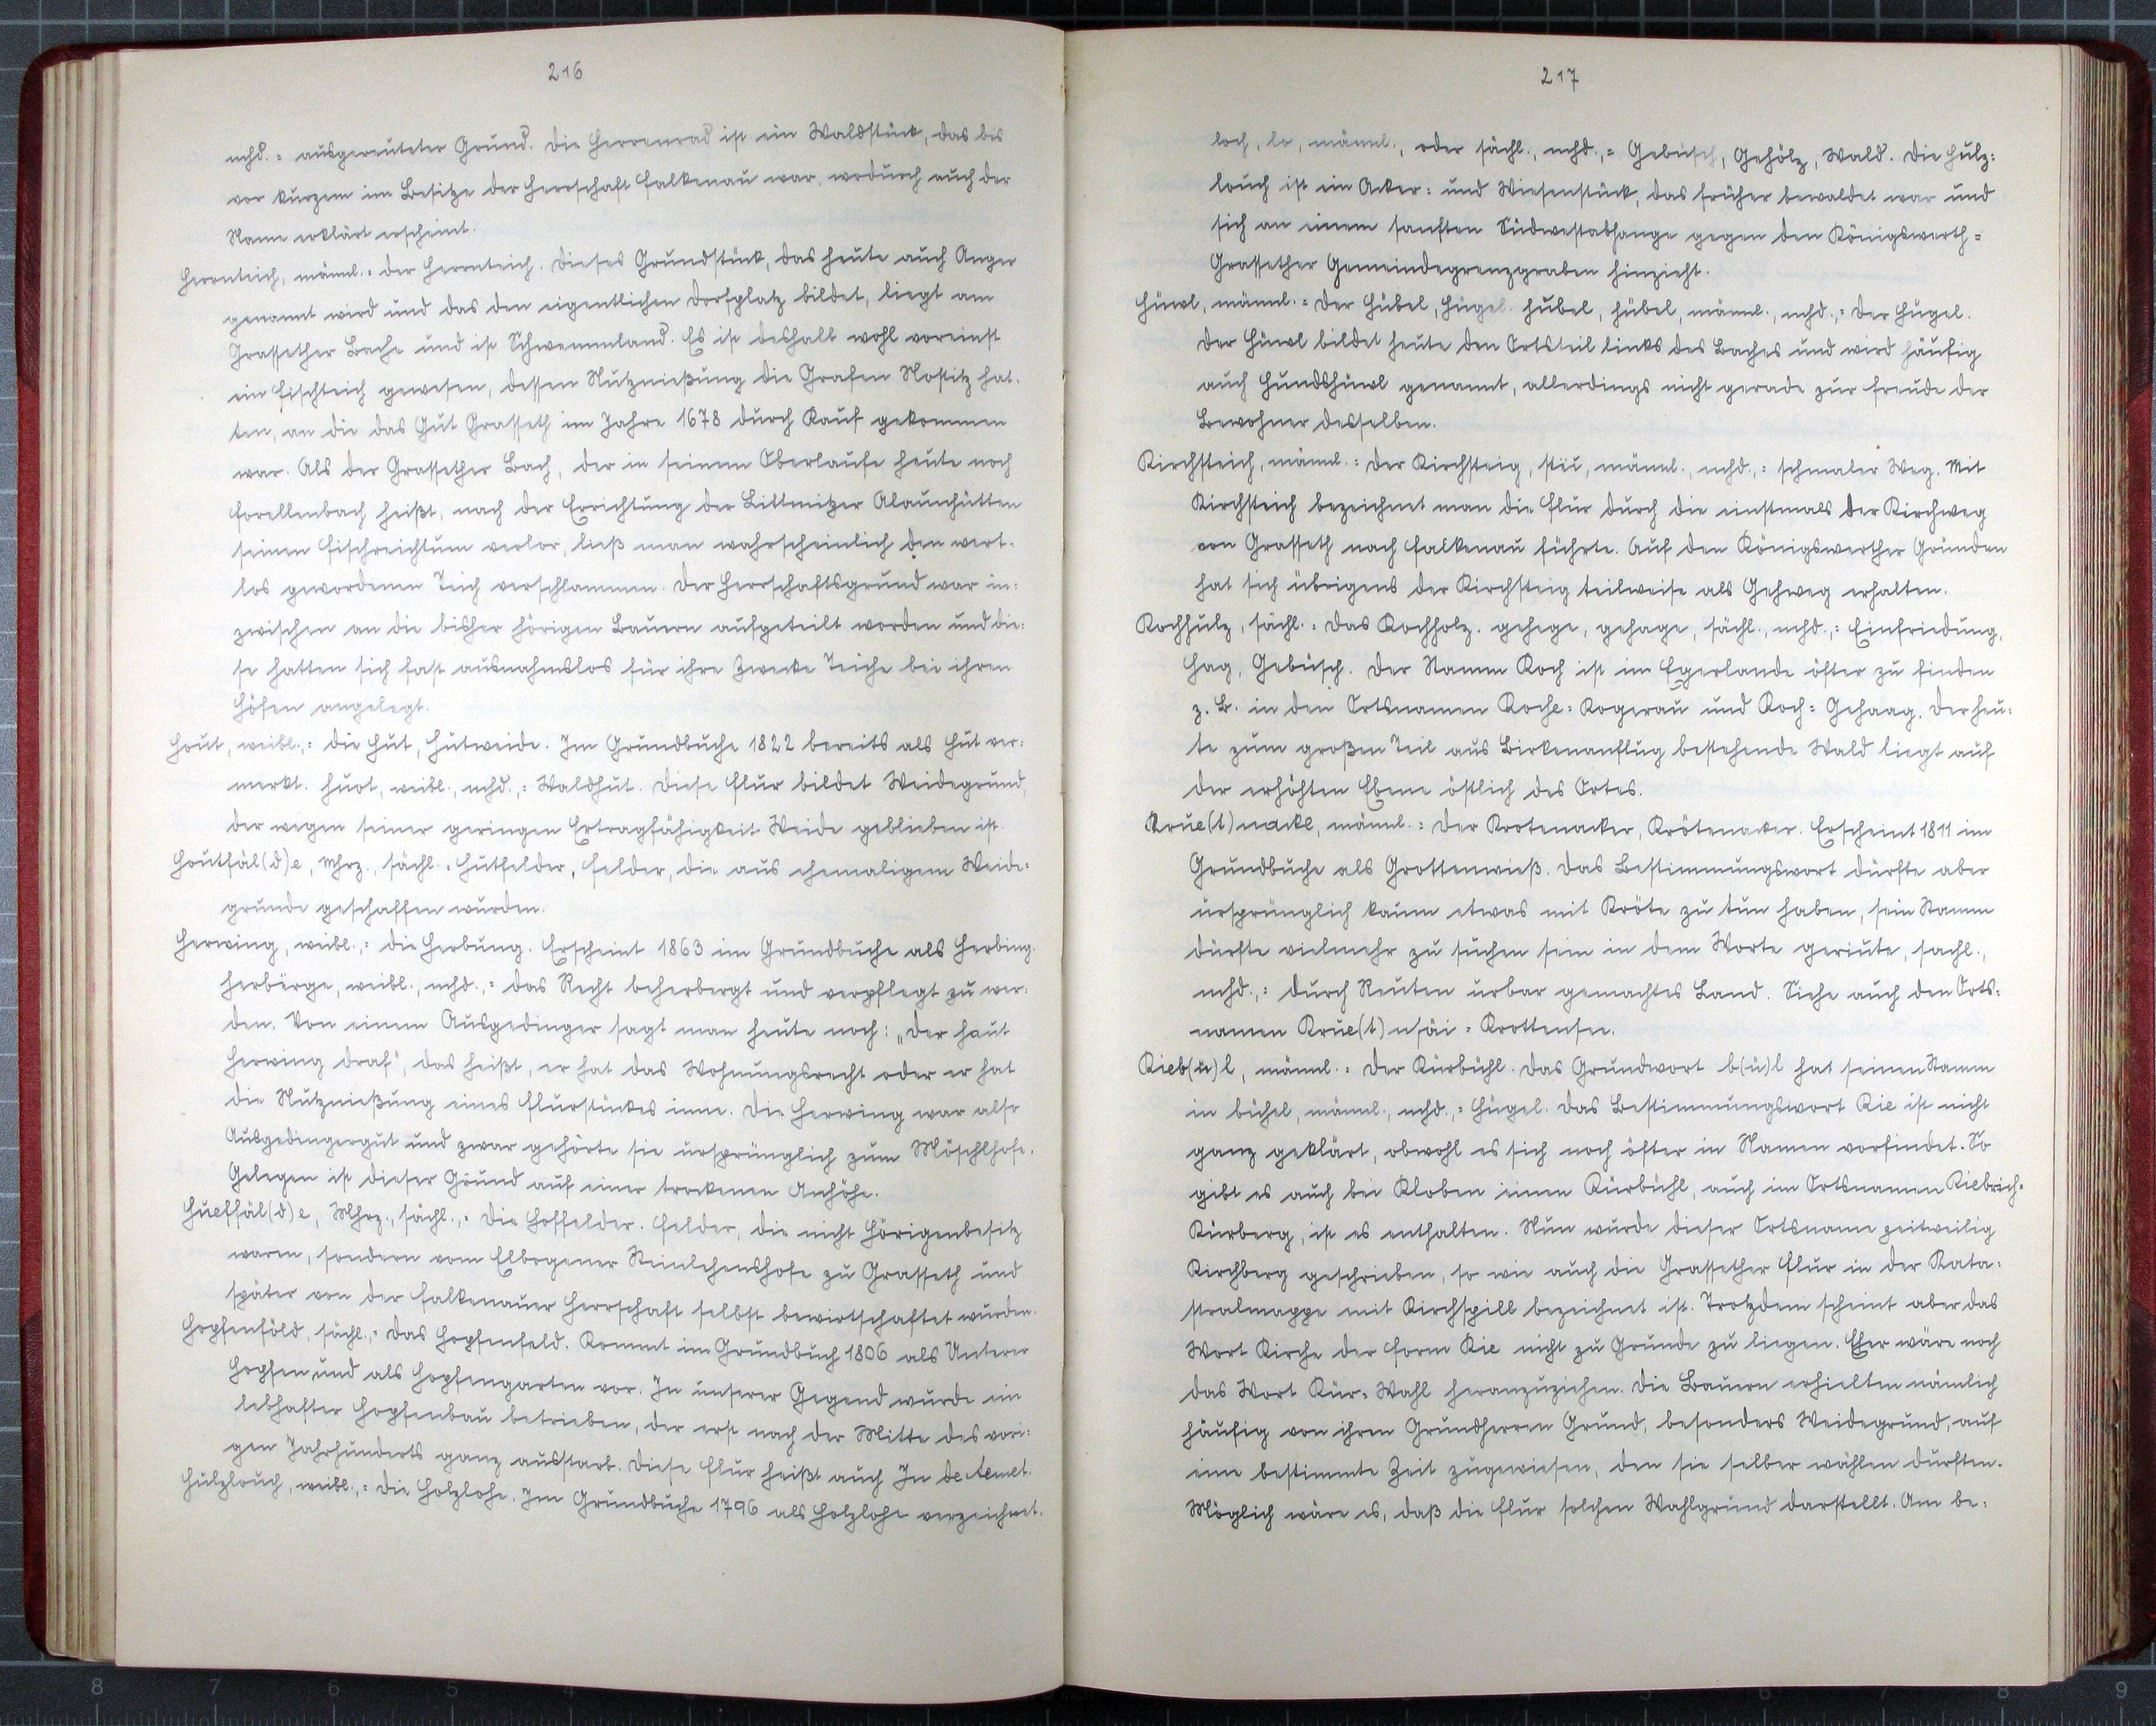 216
mhd. = ausgereuteter Grund. Die Herrenrad ist ein Waldstück, das bis
vor kurzem im Besitze der Herrschaft Falkenau war, wodurch auch der
Name erklärt erscheint.
Herrnteich, männl. = der Herrnteich. Dieses Grundstück, das heute auch Anger
genannt wird und das den eigentlichen Dorfplatz bildet, liegt am
Grassether Bache und ist Schwemmland. Es ist deshalb wohl voreinst
ein Fischteich gewesen, dessen Nutznießung die Grafen Nostitz hat-
ten, an die das Gut Grasseth im Jahre 1678 durch Kauf gekommen
war. Als der Grassether Bach, der in seinem Oberlaufe heute noch
Forellenbach heißt, nach der Errichtung der Littmitzer Alaunhütten
seinen Fischreichtum verlor, ließ man wahrscheinlich den wert-
los gewordenen Teich verschlammen. Der Herrschaftsgrund war in-
zwischen an die bisher hörigen Bauern aufgeteilt worden und die-
se hatten sich fast ausnahmslos für ihre Zwecke Teiche bei ihren
Höfen angelegt.
Hout, weibl., = die Hut, Hutweide. Im Grundbuche 1822 bereits als Hut ver-
merkt. huot, weibl., mhd., = Waldhut. Diese Flur bildet Weidegrund,
der wegen seiner geringen Ertragfähigkeit Weide geblieben ist.
Houtfäl(d)e, Mhrz., sächl. = Hutfelder, Felder, die aus ehemaligem Weide-
grunde geschaffen wurden.
Herwing, weibl., = die Herbung. Erscheint 1863 im Grundbuche als Herbing.
herbërge, weibl., mhd., = das Recht beherbergt und verpflegt zu wer-
den. Von einem Ausgedinger sagt man heute noch: „Der haut
Herwing draf", das heißt, er hat das Wohnungsrecht oder er hat
die Nutznießung eines Flurstückes inne. Die Herwing war also
Ausgedingergut und zwar gehörte sie ursprünglich zum Möschlhofe.
Gelegen ist dieser Grund auf einer trockenen Anhöhe.
Hueffäl(d)e, Mhrz., sächl., = die Hoffelder. Felder, die nicht Hörigenbesitz
waren, sondern vom Elbogener Steinlehenshofe zu Grasseth und
später von der Falkenauer Herrschaft selbst bewirtschaftet wurden.
Hopfenföld, sächl., = das Hopfenfeld. Kommt im Grundbuch 1806 als Unterer
Hopfen und als Hopfengarten vor. In unserer Gegend wurde ein
lebhafter Hopfenbau betrieben, der erst nach der Mitte des vori-
gen Jahrhunderts ganz ausstarb. Diese Flur heißt auch In de
Hulzlouch, weibl., = die Holzlohe. Im Grundbuche 1796 als Holzlohe verzeichnet.
217
loch, lo, männl., oder sächl., mhd., = Gebüsch, Gehölz, Wald. Die Hulz-
louch ist ein Acker- und Wiesenstück, das früher bewaldet war und
sich an einem sanften Südwestabhange gegen den Königswerth-
Grassether Gemeindegrenzgraben hinzieht.
Hüwl, männl. = der Hübel, Hügel. hubel, hübel, männl., mhd., = der Hügel.
Der Hüwl bildet heute den Ortsteil links des Baches und wird häufig
auch Hundshüwl genannt, allerdings nicht gerade zur Freude der
Bewohner desselben.
Kirchsteich, männl. = der Kirchsteig, stic, männl., mhd., = schmaler Weg. Mit
Kirchsteich bezeichnet man die Flur durch die einstmals der Kirchweg
von Grasseth nach Falkenau führte. Auf den Königswerther Gründen
hat sich übrigens der Kirchsteig teilweise als Gehweg erhalten.
Kochhulz, sächl. = das Kochholz. gehege, gehage, sächl., mhd., = Einfriedung,
Hag, Gebüsch. Der Stamm Koch ist im Egerlande öfter zu finden
z. B. in den Ortsnamen Koche = Kogerau und Koch = Gehaag. Der heu-
te zum großen Teil aus Birkenanflug bestehende Wald liegt auf
der erhöhten Ebene östlich des Ortes.
Krue(t)nackl, männl. = der Krotenacker, Krötenacker. Erscheint 1811 im
Grundbuche als Grottenwieß. Das Bestimmungswort dürfte aber
ursprünglich kaum etwas mit Kröte zu tun haben, sein Stamm
dürfte vielmehr zu suchen sein in dem Worte geriute, sächl.,
mhd., = durch Reuten urbar gemachtes Land. Siehe auch den Orts-
namen Krue(t)nsäi = Krottensee.
Kieb(ü)l, männl. = der Kürbühl. Das Grundwort b(ü)l hat seinen Stamm
in bühel, männl., mhd., = Hügel. Das Bestimmungswort Kie ist nicht
ganz geklärt, obwohl es sich noch öfter in Namen vorfindet. So
gibt es auch bei Kloben einen Kürbühl, auch im Ortsnamen Kiebrich =
Kürberg, ist es enthalten. Nun wurde dieser Ortsname zeitweilig
Kirchberg geschrieben, so wie auch die Grassether Flur in der Kata-
stralmappe mit Kirchspill bezeichnet ist. Trotzdem scheint aber das
Wort Kirche der Form Kie nicht zu Grunde zu liegen. Eher wäre noch
das Wort Kür = Wahl heranzuziehen. Die Bauern erhielten nämlich
häufig von ihren Grundherren Grund, besonders Weidegrund, auf
eine bestimmte Zeit zugewiesen, den sie selber wählen durften.
Möglich wäre es, daß die Flur solchen Wahlgrund darstellt. Am be-